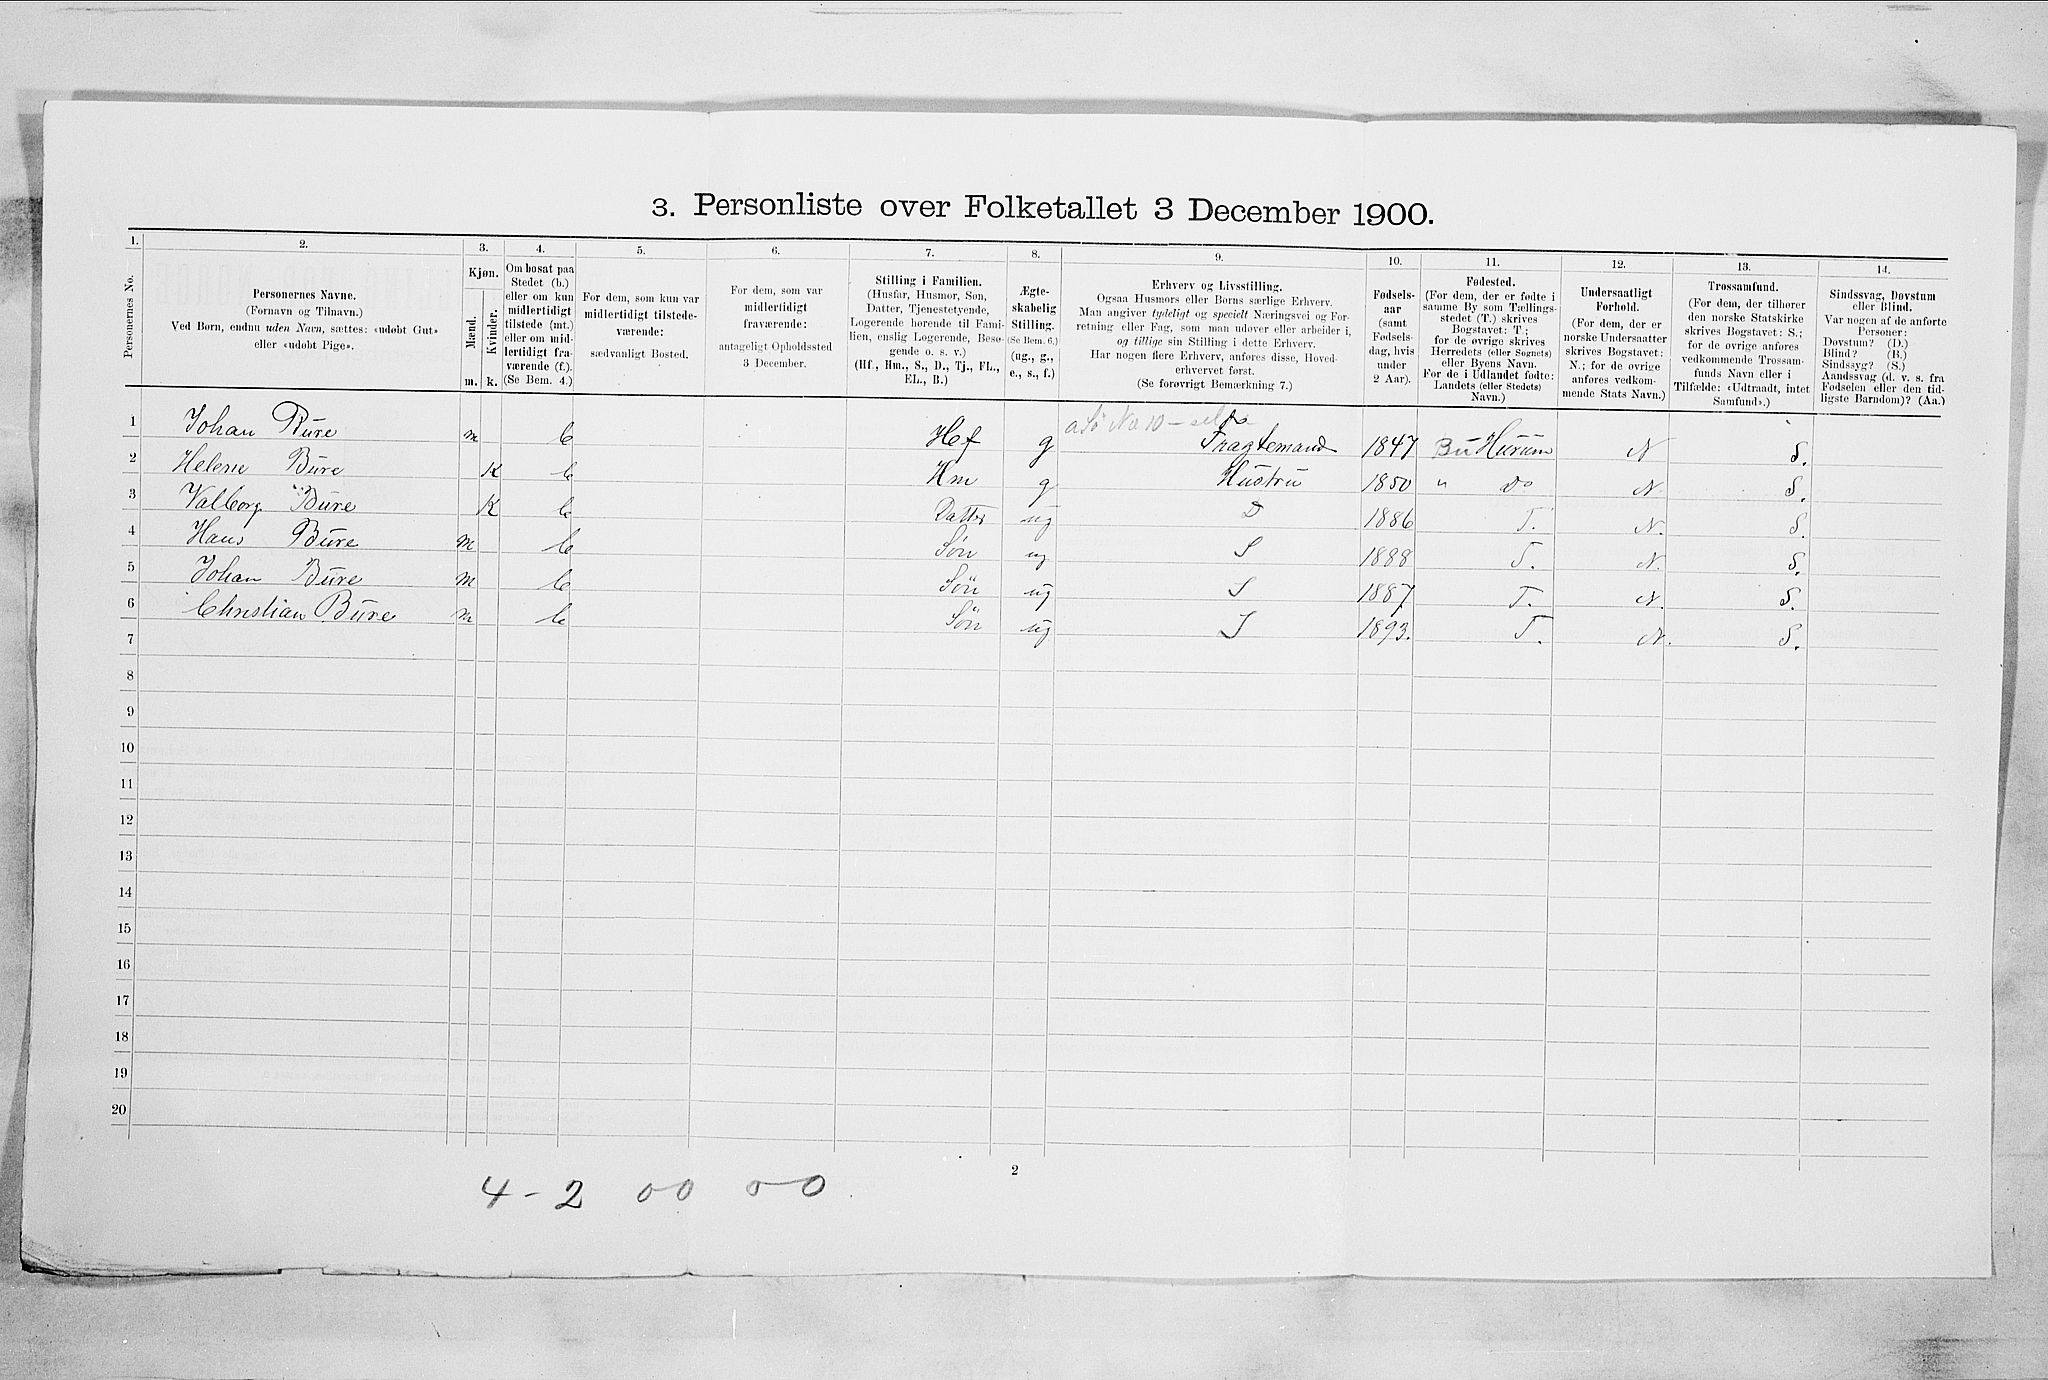 3. Personliste over Folketallet 3 December 1900.
1. 2. 3. 4. 5. 6. 7. 8. 9. 10. 11. 12. 13. 14.
Personernes No.
Personernes Navne.
(Fornavn og Tilnavn.)
Ved Børn, endnu uden Navn, sættes: «udøbt Gut»
eller «udøbt Pige».
Kjøn.
Mænd.
Kvinder.
m. k.
Om bosat paa
Stedet (b.)
eller om kun
midlertidigt
tilstede (mt.)
eller om mid-
lertidigt fra-
værende (f.).
(Se Bem. 4.)
For dem, som kun var
midlertidigt tilstede-
værende:
sædvanligt Bosted.
For dem, som var
midlertidigt
fraværende:
antageligt Opholdssted
3 December.
Stilling i Familien.
(Husfar, Husmor, Søn,
Datter, Tjenestetyende,
Logerende hørende til Fami-
lien, enslig Logerende, Besø-
gende o. s. v.)
(Hf., Hm., S., D., Tj., FL.,
EL., B.)
Ægte-
skabelig
Stilling.
(Se Bem. 6.)
(ug., g.,
e., s., f.)
Erhverv og Livsstilling.
Ogsaa Husmors eller Børns særlige Erhverv.
Man angiver tydeligt og specielt Næringsvei og For-
retning eller Fag, som man udøver eller arbeider i,
og tillige sin Stilling i dette Erhverv.
Har nogen flere Erhverv, anføres disse, Hoved-
erhvervet først.
(Se forøvrigt Bemærkning 7.)
Fødsels-
aar
(samt
Fødsels-
dag, hvis
under
2 Aar).
Fødested.
(For dem, der er fødte i
samme By som Tællings-
stedet (T.) skrives
Bogstavet: T.;
for de øvrige skrives
Herredets (eller Sognets)
eller Byens Navn.
For de i Udlandet fødte:
Landets (eller Stedets)
Navn.)
Undersaatligt
Forhold.
(For dem, der er
norske Undersaatter
skrives Bogstavet:
N.; for de øvrige
anføres vedkom-
mende Stats Navn.)
Trossamfund.
(For dem, der tilhører
den norske Statskirke
skrives Bogstavet: S.;
for de øvrige anføres
vedkommende Trossam-
funds Navn eller i
Tilfælde: «Udtraadt, intet
Samfund».)
Sindssvag, Døvstum
eller Blind.
Var nogen af de anførte
Personer:
Døvstum? (D.)
Blind? (B.)
Sindssyg? (S.)
Aandssvag (d. v. s. fra
Fødselen eller den tid-
ligste Barndom)? (Aa.)
1 Johan Bure m b Hf g Fragtemand 1847 Bu Hurum N S.
2 Helene Bure K b Hm g Hustru 1850 " Do N. S.
3 Valborg Bure K b Datter ug D 1886 T. N. S.
4 Hans Bure m b Søn ug S 1888 T. N. S.
5 Johan Bure m b Søn ug S 1887 T. N. S.
6 Christian Bure m b Søn ug S 1893. T. N. S.
7
8
9
10
11
12
13
14
15
16
17
18
19
20
2
4 - 2 00 00